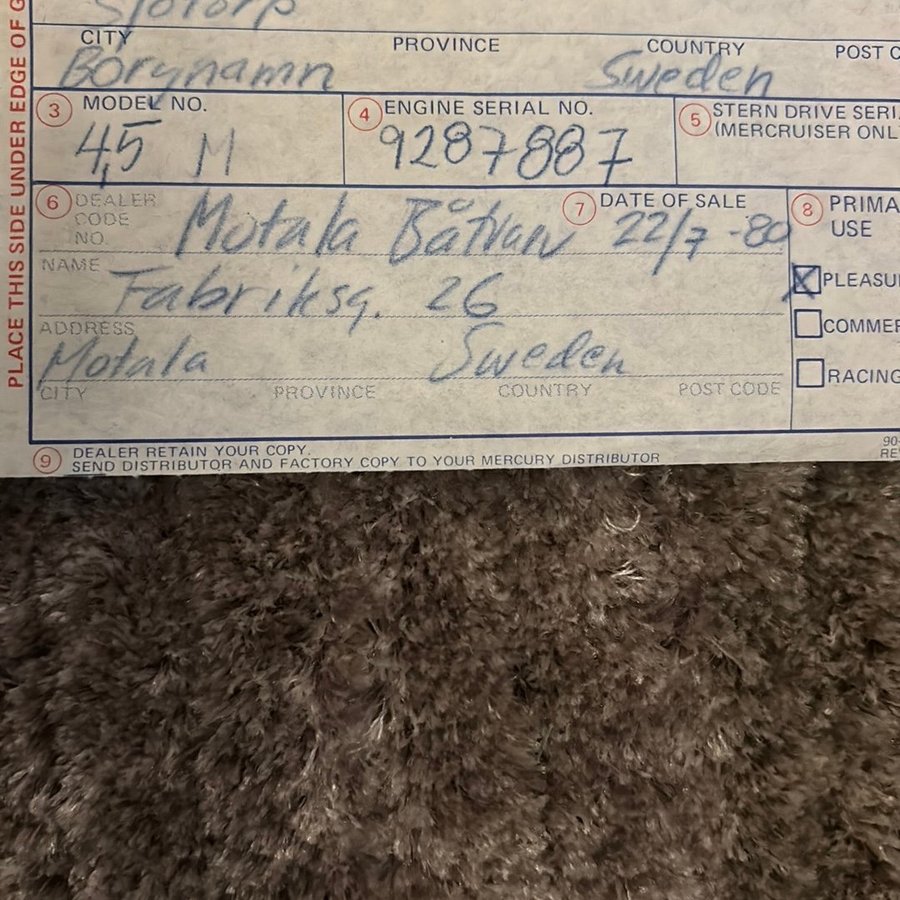 PLACE THIS SIDE UNDER EDGE OF G
Slotorp
CITY PROVINCE COUNTRY POST C
Borgnamn Sweden
3 MODEL NO. 4 ENGINE SERIAL NO. 5 STERN DRIVE SERI
(MERCRUISER ONL
4,5 M 9287887
6 DEALER CODE NO. Motala Båtvarv 7 DATE OF SALE 22/7 -80 8 PRIMA
USE
NAME
Fabriksg. 26 PLEASU
ADDRESS COMMER
Motala Sweden
CITY PROVINCE COUNTRY POST CODE RACING
9 DEALER RETAIN YOUR COPY.
SEND DISTRIBUTOR AND FACTORY COPY TO YOUR MERCURY DISTRIBUTOR
90-
RE